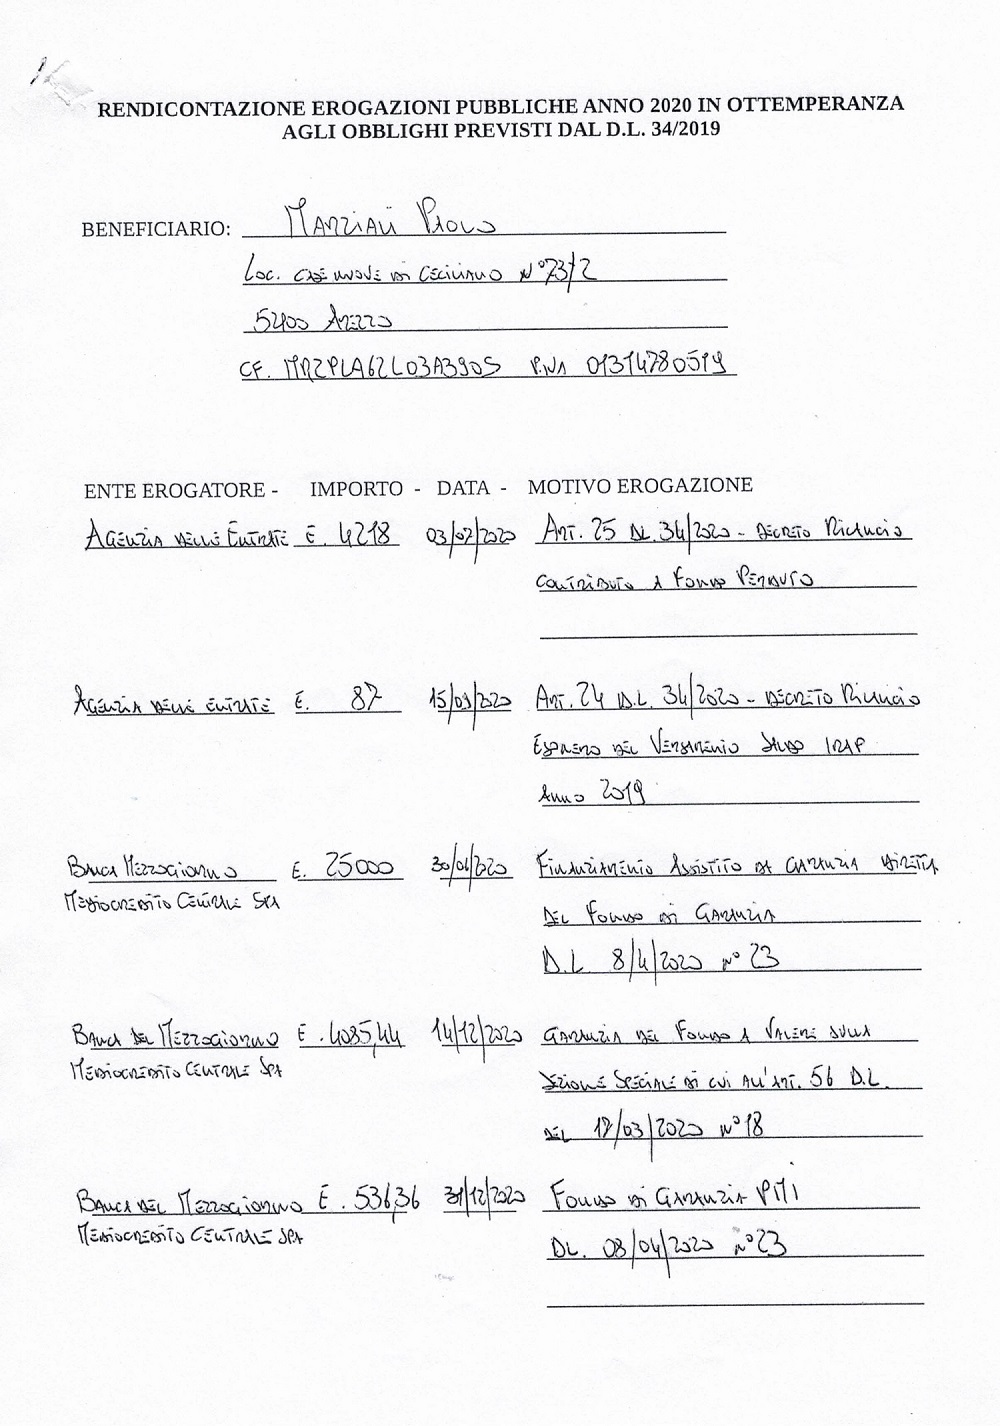 RENDICONTAZIONE EROGAZIONI PUBBLICHE ANNO 2020 IN OTTEMPERANZA
AGLI OBBLIGHI PREVISTI DAL D.L. 34/2019
BENEFICIARIO: MARZIALI PAOLO
LOC. CASE NUOVE DI CECILIANO N° 73/2
52100 AREZZO
CF. MRZPLA62L03A390S P.IVA 01314780519
ENTE EROGATORE - IMPORTO - DATA - MOTIVO EROGAZIONE
AGENZIA DELLE ENTRATE €. 4218 03/07/2020 ART. 25 DL. 34/2020 - DECRETO RILANCIO
CONTRIBUTO A FONDO PERDUTO
AGENZIA DELLE ENTRATE €. 87 15/09/2020 ART. 24 D.L. 34/2020 - DECRETO RILANCIO
ESONERO DEL VERSAMENTO SALDO IRAP
ANNO 2019
BANCA MEZZOGIORNO €. 25000 30/06/2020 FINANZIAMENTO ASSISTITO DA GARANZIA DIRETTA
MEDIOCREDITO CENTRALE SPA
DEL FONDO DI GARANZIA
D.L 8/4/2020 N° 23
BANCA DEL MEZZOGIORNO €. 4085,44 14/12/2020 GARANZIA DEL FONDO A VALERE SULLA
MEDIOCREDITO CENTRALE SPA
SEZIONE SPECIALE DI CUI ALL'ART. 56 D.L.
DEL 17/03/2020 N° 18
BANCA DEL MEZZOGIORNO €. 536,36 31/12/2020 FONDO DI GARANZIA PMI
MEDIOCREDITO CENTRALE SPA
DL. 08/04/2020 N° 23